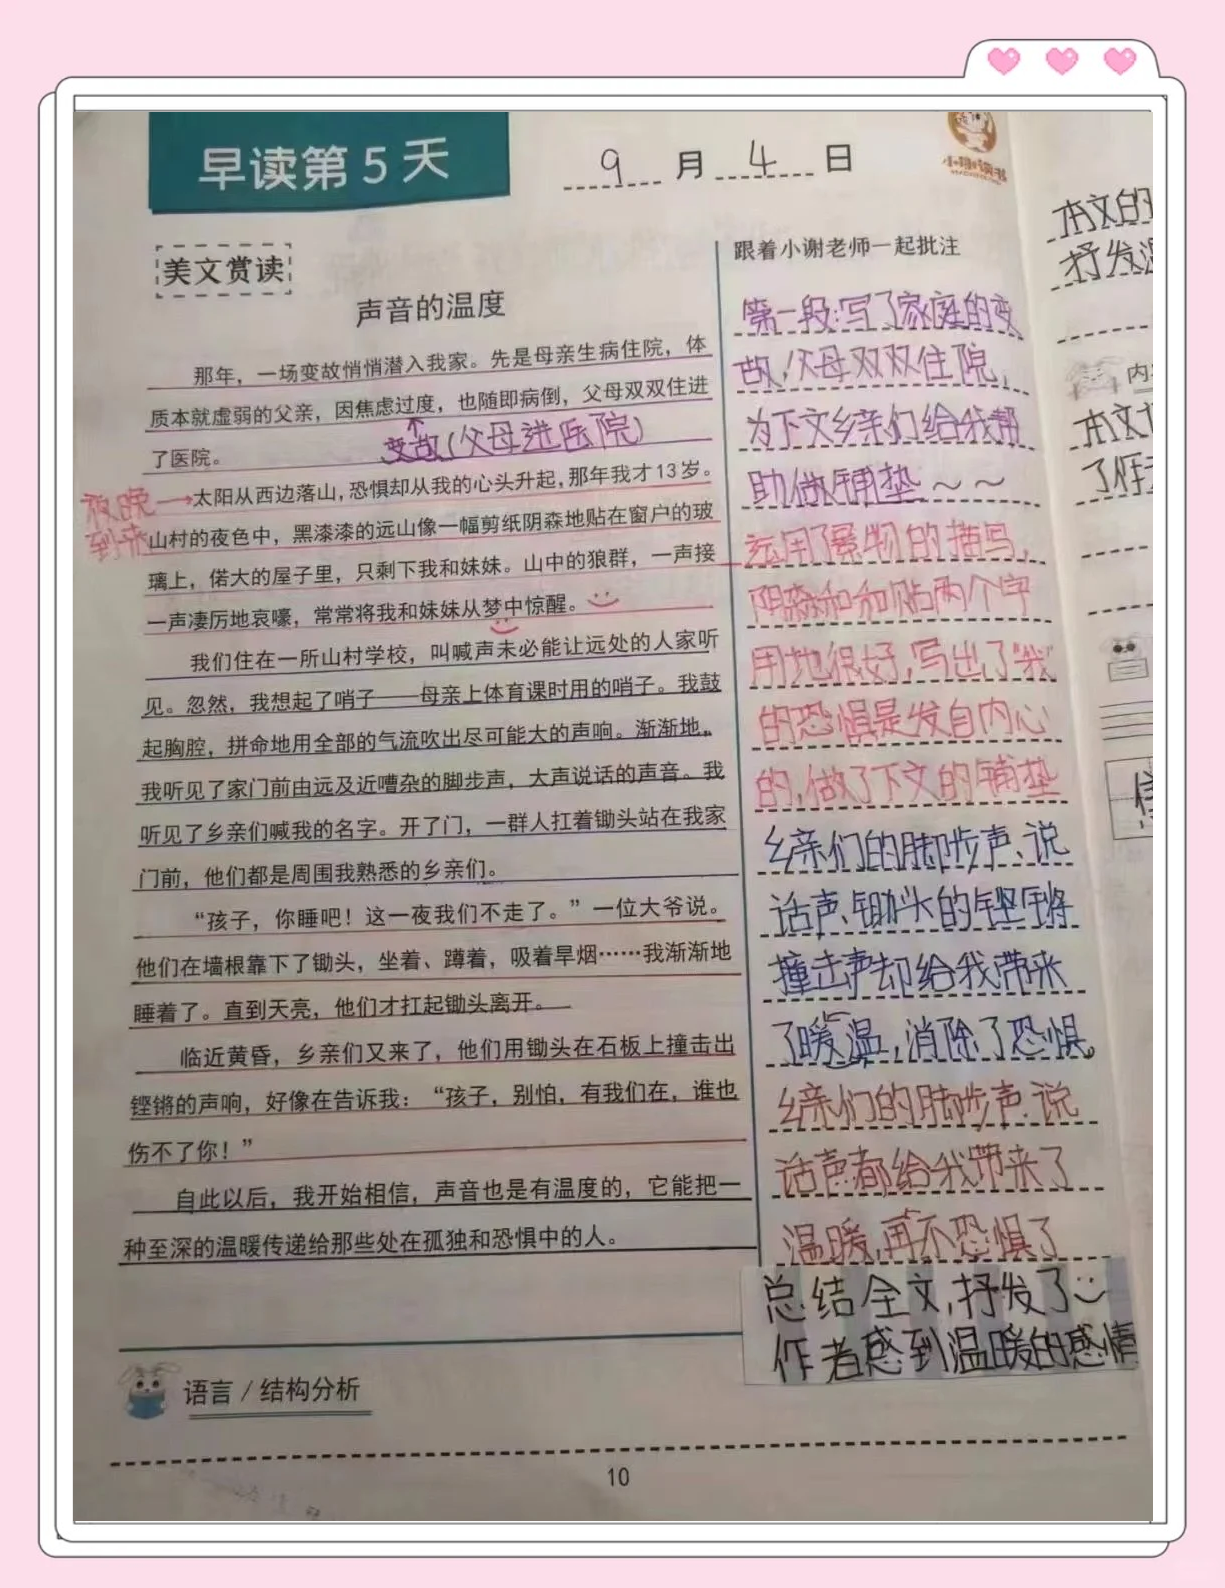 早读第5天
9月4日
小谢读书
美文赏读
声音的温度
那年，一场变故悄悄潜入我家。先是母亲生病住院，体
质本就虚弱的父亲，因焦虑过度，也随即病倒，父母双双住进
了医院。
变故(父母进医院)
夜晚
到来
太阳从西边落山，恐惧却从我的心头升起，那年我才13岁。
山村的夜色中，黑漆漆的远山像一幅剪纸阴森地贴在窗户的玻
璃上，偌大的屋子里，只剩下我和妹妹。山中的狼群，一声接
一声凄厉地哀嚎，常常将我和妹妹从梦中惊醒。
我们住在一所山村学校，叫喊声未必能让远处的人家听
见。忽然，我想起了哨子——母亲上体育课时用的哨子。我鼓
起胸腔，拼命地用全部的气流吹出尽可能大的声响。渐渐地，
我听见了家门前由远及近嘈杂的脚步声，大声说话的声音。我
听见了乡亲们喊我的名字。开了门，一群人扛着锄头站在我家
门前，他们都是周围我熟悉的乡亲们。
“孩子，你睡吧！这一夜我们不走了。”一位大爷说。
他们在墙根靠下了锄头，坐着、蹲着，吸着旱烟……我渐渐地
睡着了。直到天亮，他们才扛起锄头离开。
临近黄昏，乡亲们又来了，他们用锄头在石板上撞击出
铿锵的声响，好像在告诉我：“孩子，别怕，有我们在，谁也
伤不了你！”
自此以后，我开始相信，声音也是有温度的，它能把一
种至深的温暖传递给那些处在孤独和恐惧中的人。
语言/结构分析
跟着小谢老师一起批注
第一段:写了家庭的变
故,父母双双住院,
为下文乡亲们给我帮
助做铺垫~~
运用了景物的描写,
阴森和和贴两个字
用地很好,写出了“我”
的恐惧是发自内心
的,做了下文的铺垫
乡亲们的脚步声、说
话声、锄头的铿锵
撞击声却给我带来
了暖温,消除了恐惧。
乡亲们的脚步声、说
话声都给我带来了
温暖,再不恐惧了
总结全文,抒发了
作者感到温暖的感情
10
本文的
抒发温
本文
了作